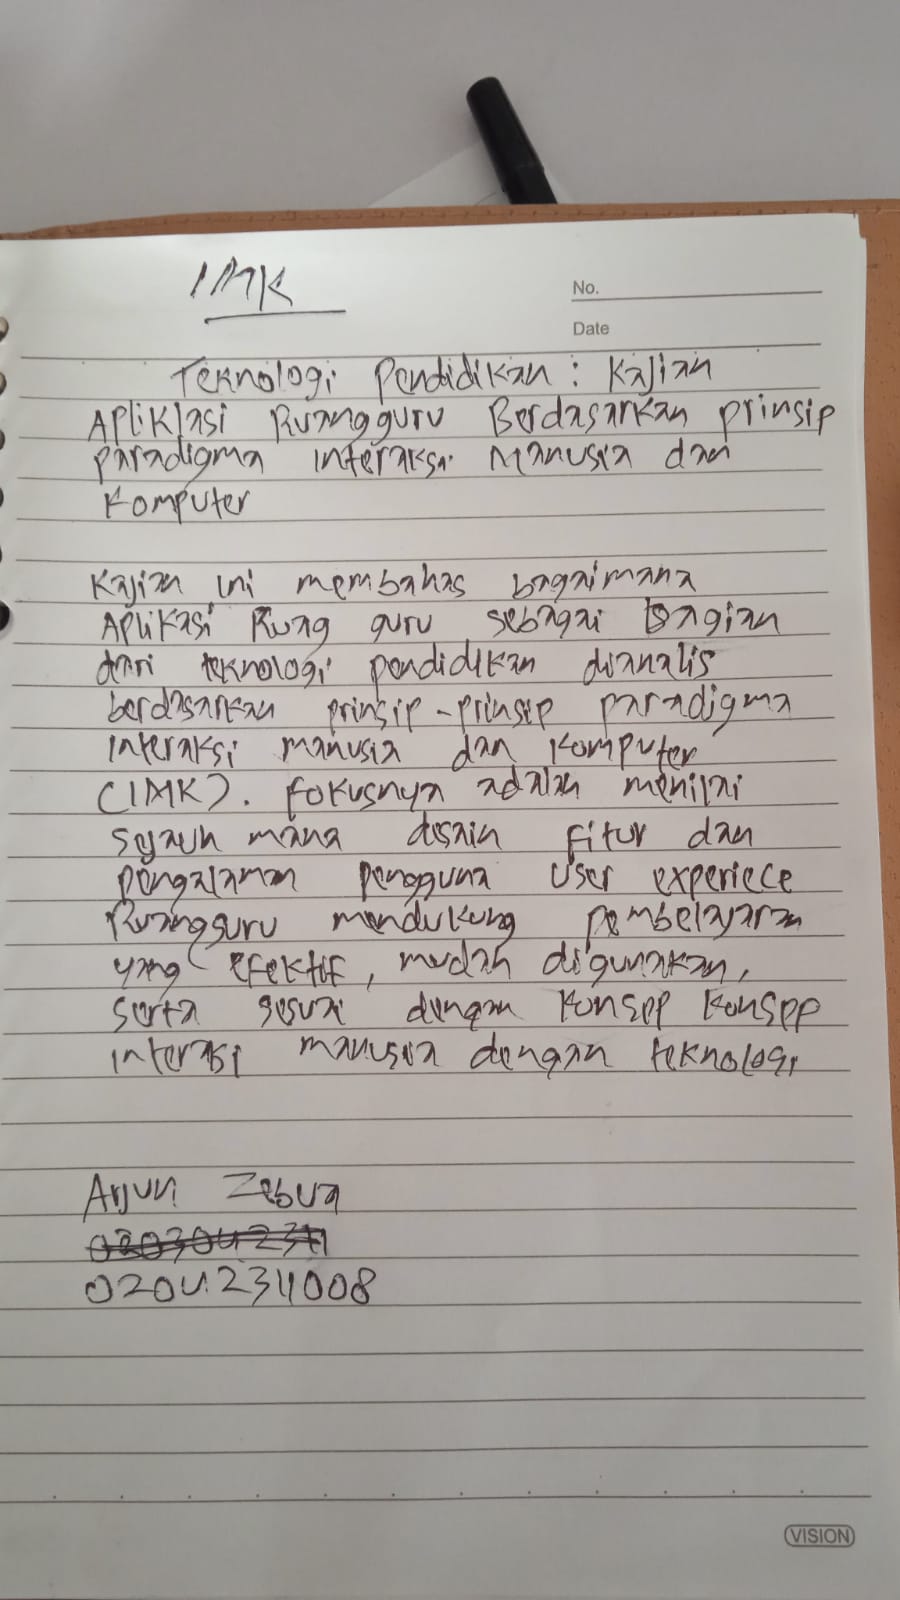 IMK
No.
Date
Teknologi Pendidikan : Kajian
Aplikasi Ruangguru Berdasarkan prinsip
paradigma interaksi Manusia dan
Komputer
Kajian ini membahas bagaimana
Aplikasi Ruang guru sebagai bagian
dari teknologi pendidikan dianalis
berdasarkan prinsip-prinsip paradigma
interaksi manusia dan Komputer
(IMK). Fokusnya adalah menilai
sejauh mana desain fitur dan
pengalaman pengguna user experiece
Ruangguru mendukung pembelajaran
yang efektif, mudah digunakan,
serta sesuai dengan konsep konsep
interasi manusia dengan teknologi
Arjun Zebua
020423411008
VISION